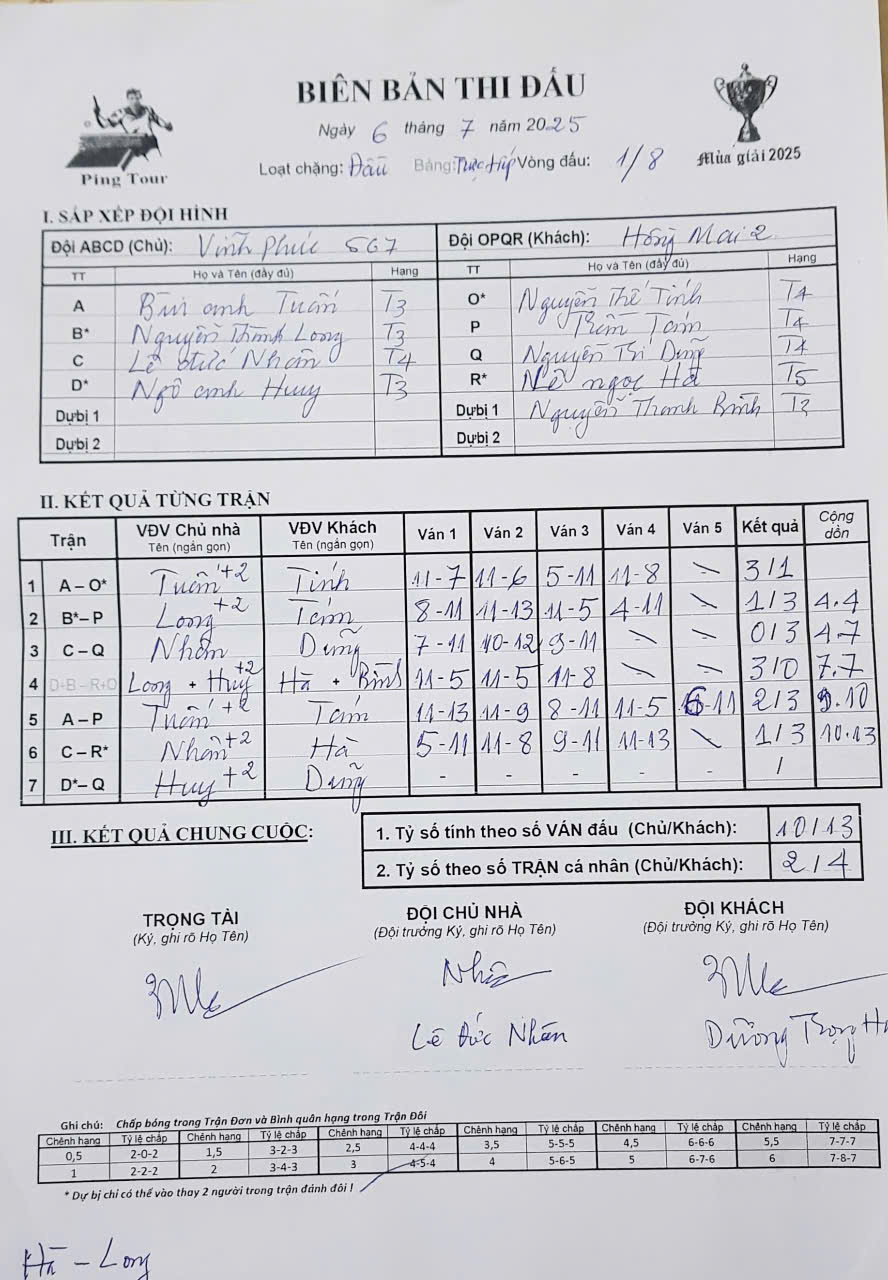 BIÊN BẢN THI ĐẤU
Ngày 6 tháng 7 năm 2025
Loạt chặng: Đấu Bảng: Trực tiếp Vòng đấu: 1/8
Ping Tour
Mùa giải 2025
I. SẮP XẾP ĐỘI HÌNH
Đội ABCD (Chủ): Vĩnh Phúc 567 Đội OPQR (Khách): Hồng Mai 2
TT Họ và Tên (đầy đủ) Hạng TT Họ và Tên (đầy đủ) Hạng
A Bùi anh Tuấn T3 O* Nguyễn Thế Tính T4
B* Nguyễn Thành Long T3 P Trần Tám T4
C Lê đức Nhân T4 Q Nguyễn Trí Dũng T4
D* Ngô anh Huy T3 R* Lê ngọc Hà T5
Dự bị 1 Dự bị 1 Nguyễn Thanh Bình T3
Dự bị 2 Dự bị 2
II. KẾT QUẢ TỪNG TRẬN
Trận VĐV Chủ nhà Tên (ngắn gọn) VĐV Khách Tên (ngắn gọn) Ván 1 Ván 2 Ván 3 Ván 4 Ván 5 Kết quả Cộng dồn
1 A – O* Tuấn+2 Tính 11-7 11-6 5-11 11-8 - 3/1
2 B*– P Long+2 Tám 8-11 11-13 11-5 4-11 - 1/3 4.4
3 C – Q Nhân Dũng 7-11 10-12 9-11 - - 0/3 4.7
4 D+B – R+O Long + Huy+2 Hà + Bình 11-5 11-5 11-8 - - 3/0 7.7
5 A – P Tuấn+2 Tám 11-13 11-9 8-11 11-5 6-11 2/3 9.10
6 C – R* Nhân+2 Hà 5-11 11-8 9-11 11-13 \ 1/3 10.13
7 D*– Q Huy+2 Dũng - - - - - /
III. KẾT QUẢ CHUNG CUỘC:
1. Tỷ số tính theo số VÁN đấu (Chủ/Khách): 10/13
2. Tỷ số theo số TRẬN cá nhân (Chủ/Khách): 2/4
TRỌNG TÀI ĐỘI CHỦ NHÀ ĐỘI KHÁCH
(Ký, ghi rõ Họ Tên) (Đội trưởng Ký, ghi rõ Họ Tên) (Đội trưởng Ký, ghi rõ Họ Tên)
Lê Đức Nhân Dương Trọng
Ghi chú: Chấp bóng trong Trận Đơn và Bình quân hạng trong Trận Đôi
Chênh hạng Tỷ lệ chấp Chênh hạng Tỷ lệ chấp Chênh hạng Tỷ lệ chấp Chênh hạng Tỷ lệ chấp Chênh hạng Tỷ lệ chấp Chênh hạng Tỷ lệ chấp
0,5 2-0-2 1,5 3-2-3 2,5 4-4-4 3,5 5-5-5 4,5 6-6-6 5,5 7-7-7
1 2-2-2 2 3-4-3 3 4-5-4 4 5-6-5 5 6-7-6 6 7-8-7
* Dự bị chỉ có thể vào thay 2 người trong trận đánh đôi !
Hà - Long